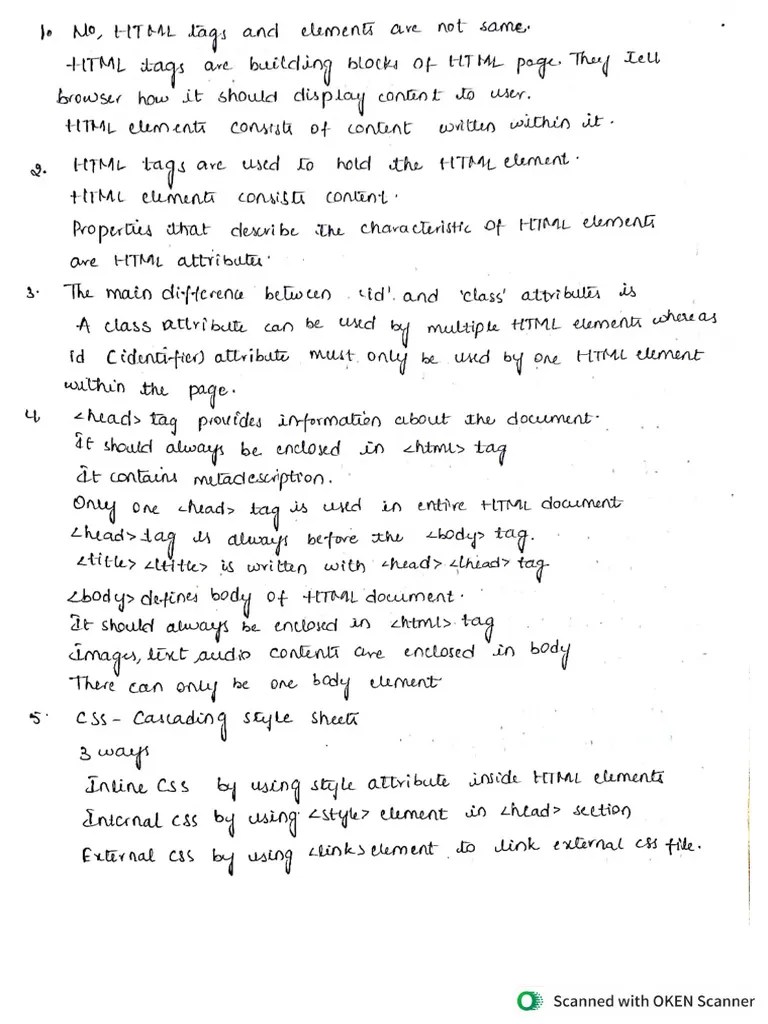 1. No, HTML tags and elements are not same.
HTML tags are building blocks of HTML page. They tell
browser how it should display content to user.
HTML elements consists of content written within it.
2. HTML tags are used to hold the HTML element.
HTML elements consists content.
Properties that describe the characteristic of HTML elements
are HTML attributes.
3. The main difference between 'id' and 'class' attributes is
A class attribute can be used by multiple HTML elements whereas
id (identifier) attribute must only be used by one HTML element
within the page.
4. <head> tag provides information about the document.
It should always be enclosed in <html> tag
It contains metadescription.
Only one <head> tag is used in entire HTML document
<head> tag is always before the <body> tag.
<title> </title> is written with <head> </head> tag
<body> defines body of HTML document.
It should always be enclosed in <html> tag
images, text, audio contents are enclosed in body
There can only be one body element
5. CSS - Cascading style sheets
3 ways
Inline CSS by using style attribute inside HTML elements
Internal CSS by using <style> element in <head> section
External CSS by using <link> element to link external css file.
Scanned with OKEN Scanner